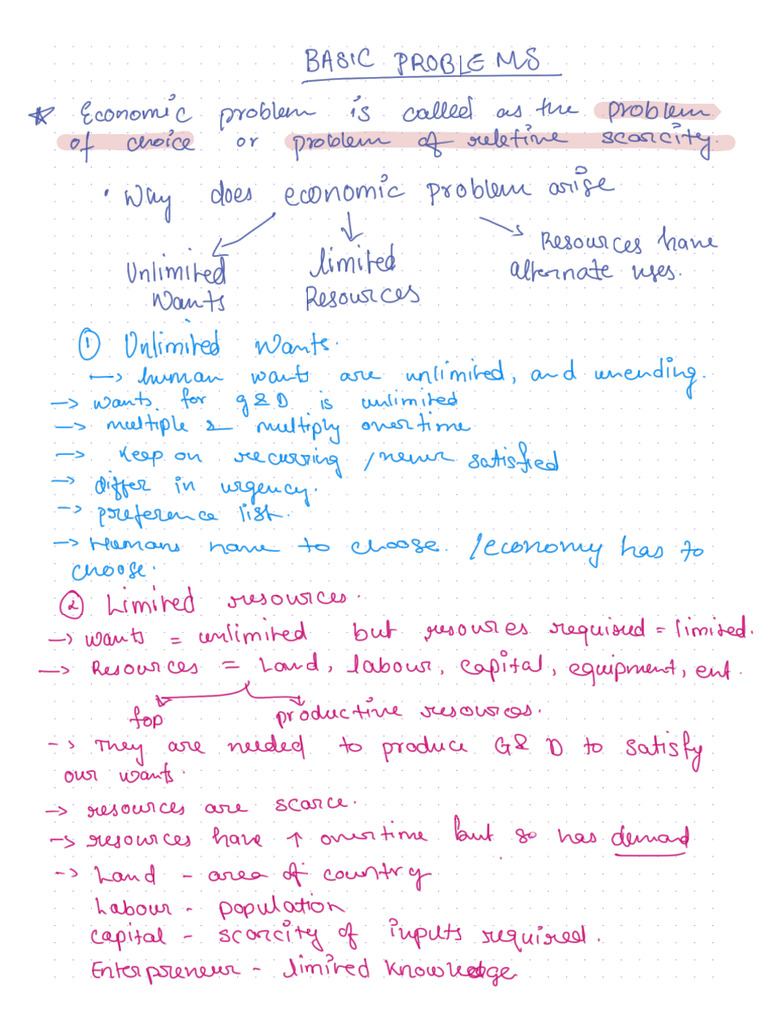 BASIC PROBLEMS
* Economic problem is called as the problem
of choice or problem of reletive scarcity.
• Why does economic problem arise
Unlimited Wants
limited Resources
Resources have alternate uses.
① Unlimited wants.
→ human wants are unlimited, and unending.
→ wants for g&D is unlimited
→ multiple & multiply overtime
→ keep on recurring / never satisfied
→ differ in urgency.
→ preference list.
→ Humans have to choose. / economy has to
choose.
② Limited resources.
→ wants = unlimited but resources required = limited.
→ Resources = Land, labour, capital, equipment, ent.
fop productive resources.
→ They are needed to produce G& D to satisfy
our wants.
→ resources are scarce.
→ resources have ↑ overtime but so has demand
→ Land - area of country
Labour - population
Capital - scarcity of inputs required.
Enterpreneur - limited knowledge